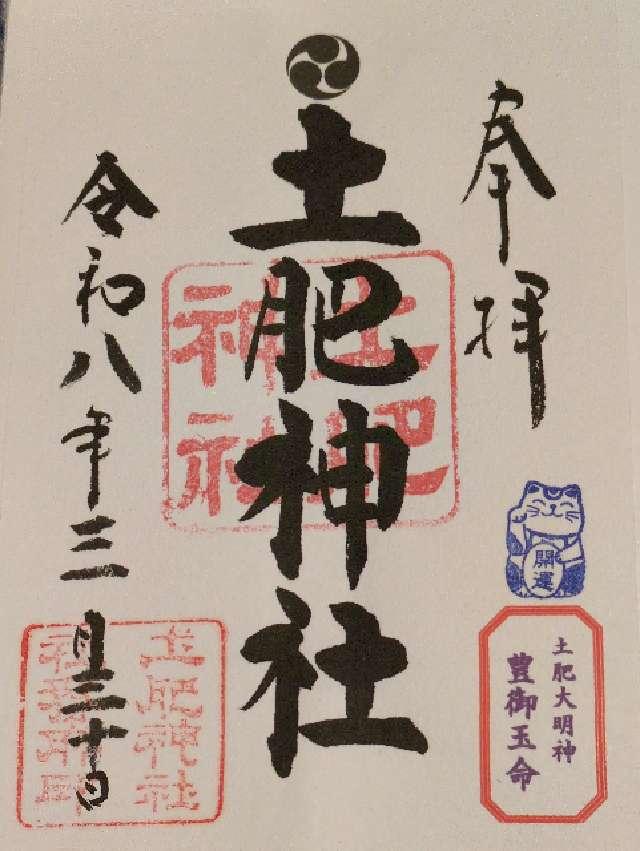 奉拝
開運
土肥大明神
豊御玉命
土肥神社
土肥神社
令和八年三月二十日
土肥神社
社務所印